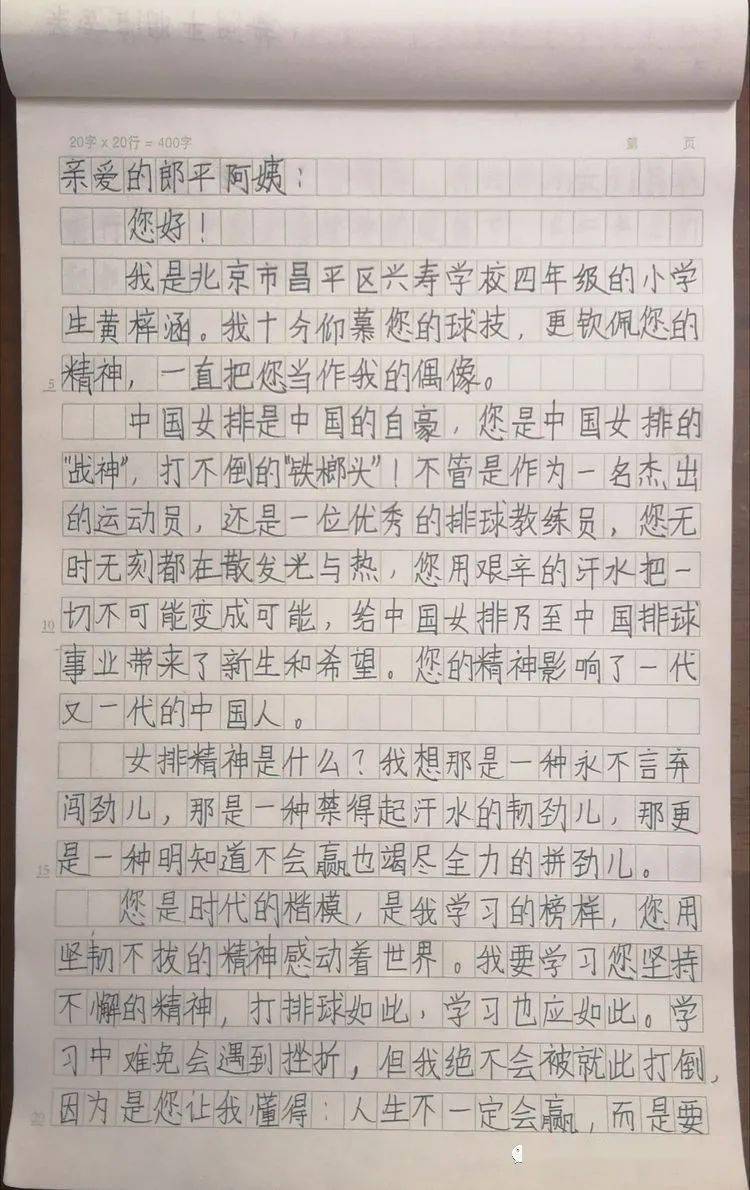 20字×20行=400字 第 页
亲爱的郎平阿姨：
您好！
我是北京市昌平区兴寿学校四年级的小学
生黄梓涵。我十分仰慕您的球技，更钦佩您的
5 精神，一直把您当作我的偶像。
中国女排是中国的自豪，您是中国女排的
“战神”，打不倒的“铁榔头”！不管是作为一名杰出
的运动员，还是一位优秀的排球教练员，您无
时无刻都在散发光与热，您用艰辛的汗水把一
10 切不可能变成可能，给中国女排乃至中国排球
事业带来了新生和希望。您的精神影响了一代
又一代的中国人。
女排精神是什么？我想那是一种永不言弃
闯劲儿，那是一种禁得起汗水的韧劲儿，那更
15 是一种明知道不会赢也竭尽全力的拼劲儿。
您是时代的楷模，是我学习的榜样，您用
坚韧不拔的精神感动着世界。我要学习您坚持
不懈的精神，打排球如此，学习也应如此。学
习中难免会遇到挫折，但我绝不会被就此打倒，
20 因为是您让我懂得：人生不一定会赢，而是要